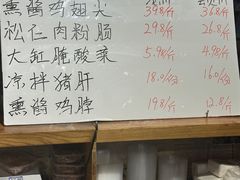 熏酱鸡翅尖 39.8/斤 36.8/斤
松仁肉粉肠 29.8/斤 26.8/斤
大缸腌酸菜 5.98/斤 4.98/斤
凉拌猪肝 18.0/份 16.0/份
熏酱鸡脖 19.8/斤 12.8/斤